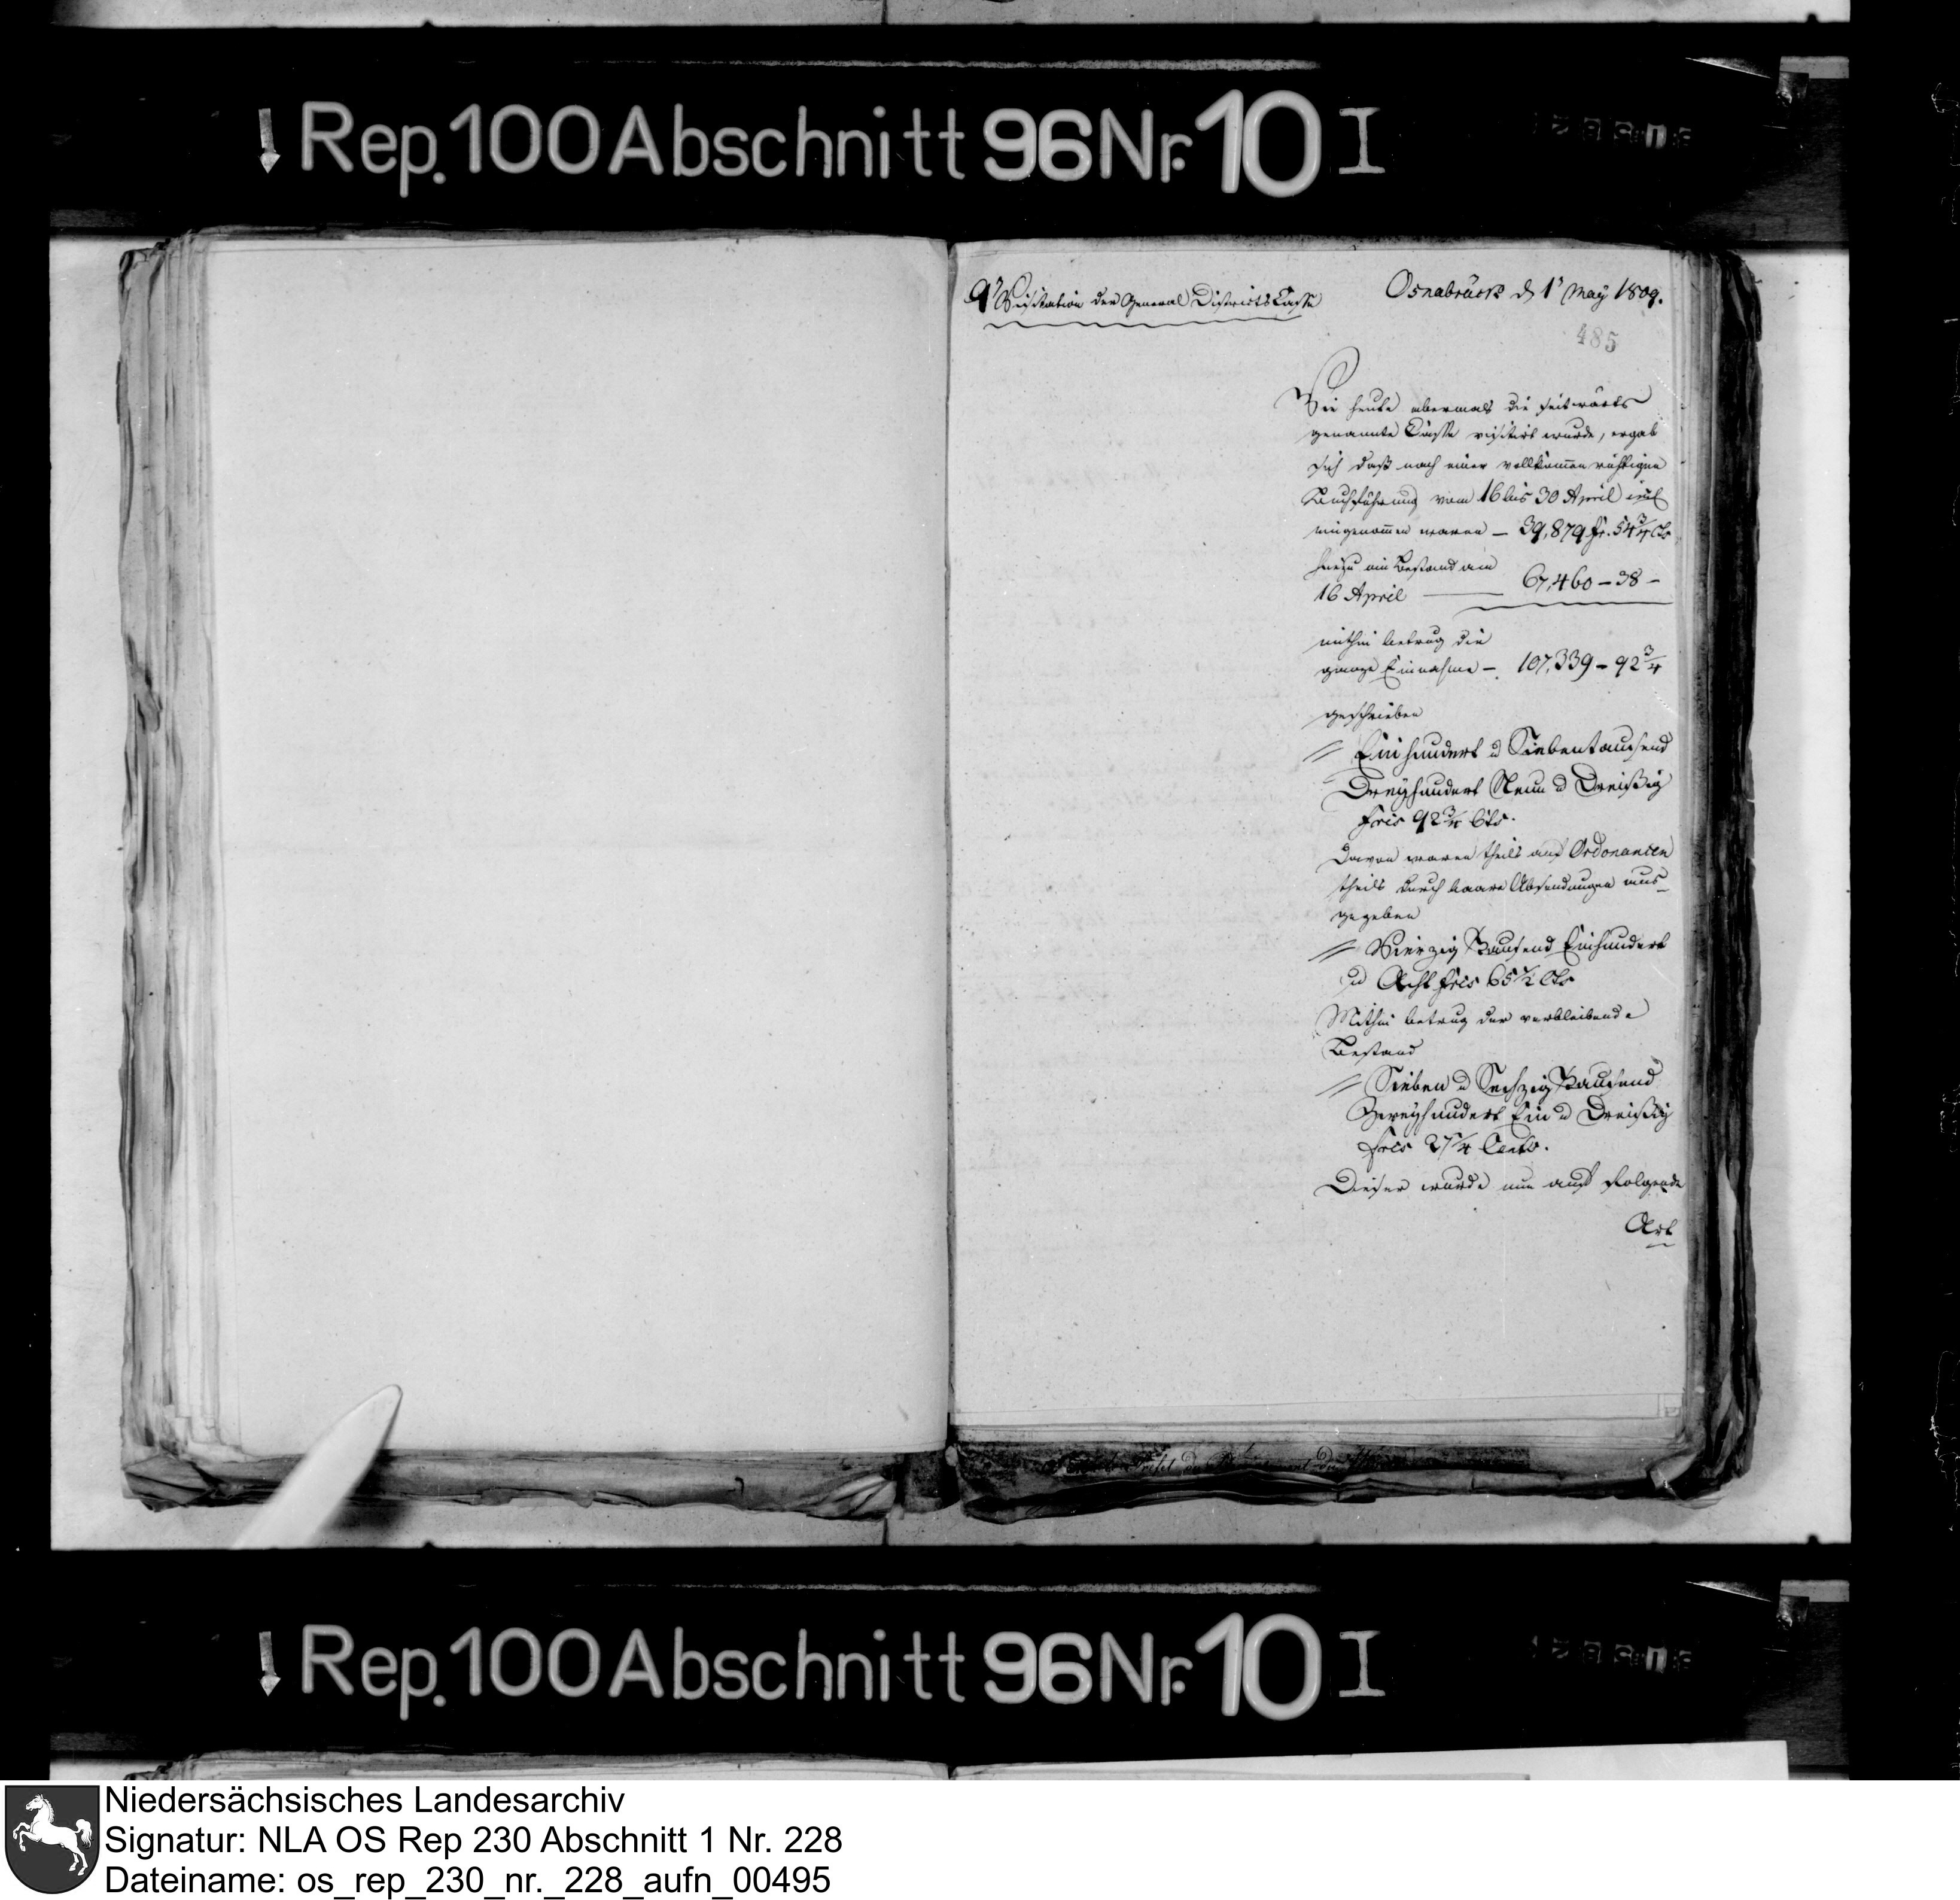 Rep. 100 Abschnitt 96 Nr. 10 I
9' Visitation der General Districts Casse
Osnabrück d 1' May 1809.
485
Wie heute abermals die seitwärts
genannte Casse visitirt wurde, ergab
sich daß nach einer vollkom̄en richtigen
Buchführung vom 16 bis 30 April incl
eingenom̄en waren — 39,879 fr. 54 3/4 Cts
hiezu ein Bestand am
16 April — 67,460 — 38 —
mithin betrug die
ganze Einnahme — 107,339 — 92 3/4
geschrieben
// Einhundert u Siebentausend
Dreyhundert Neun u Dreißig
frcs 92 3/4 Cts.
Davon waren theils auf Ordonancen
theils durch baare Absendungen aus-
gegeben
// Vierzig Tausend Einhundert
u Acht frcs 65 1/2 Cts
Mithin betrug der verbleibende
Bestand
// Sieben u Sechzig Tausend
Zweyhundert Ein u Dreißig
frcs 27 1/4 Cents.
Dieser wurde nun auf folgende
Art
Rep. 100 Abschnitt 96 Nr. 10 I
Niedersächsisches Landesarchiv
Signatur: NLA OS Rep 230 Abschnitt 1 Nr. 228
Dateiname: os_rep_230_nr._228_aufn_00495